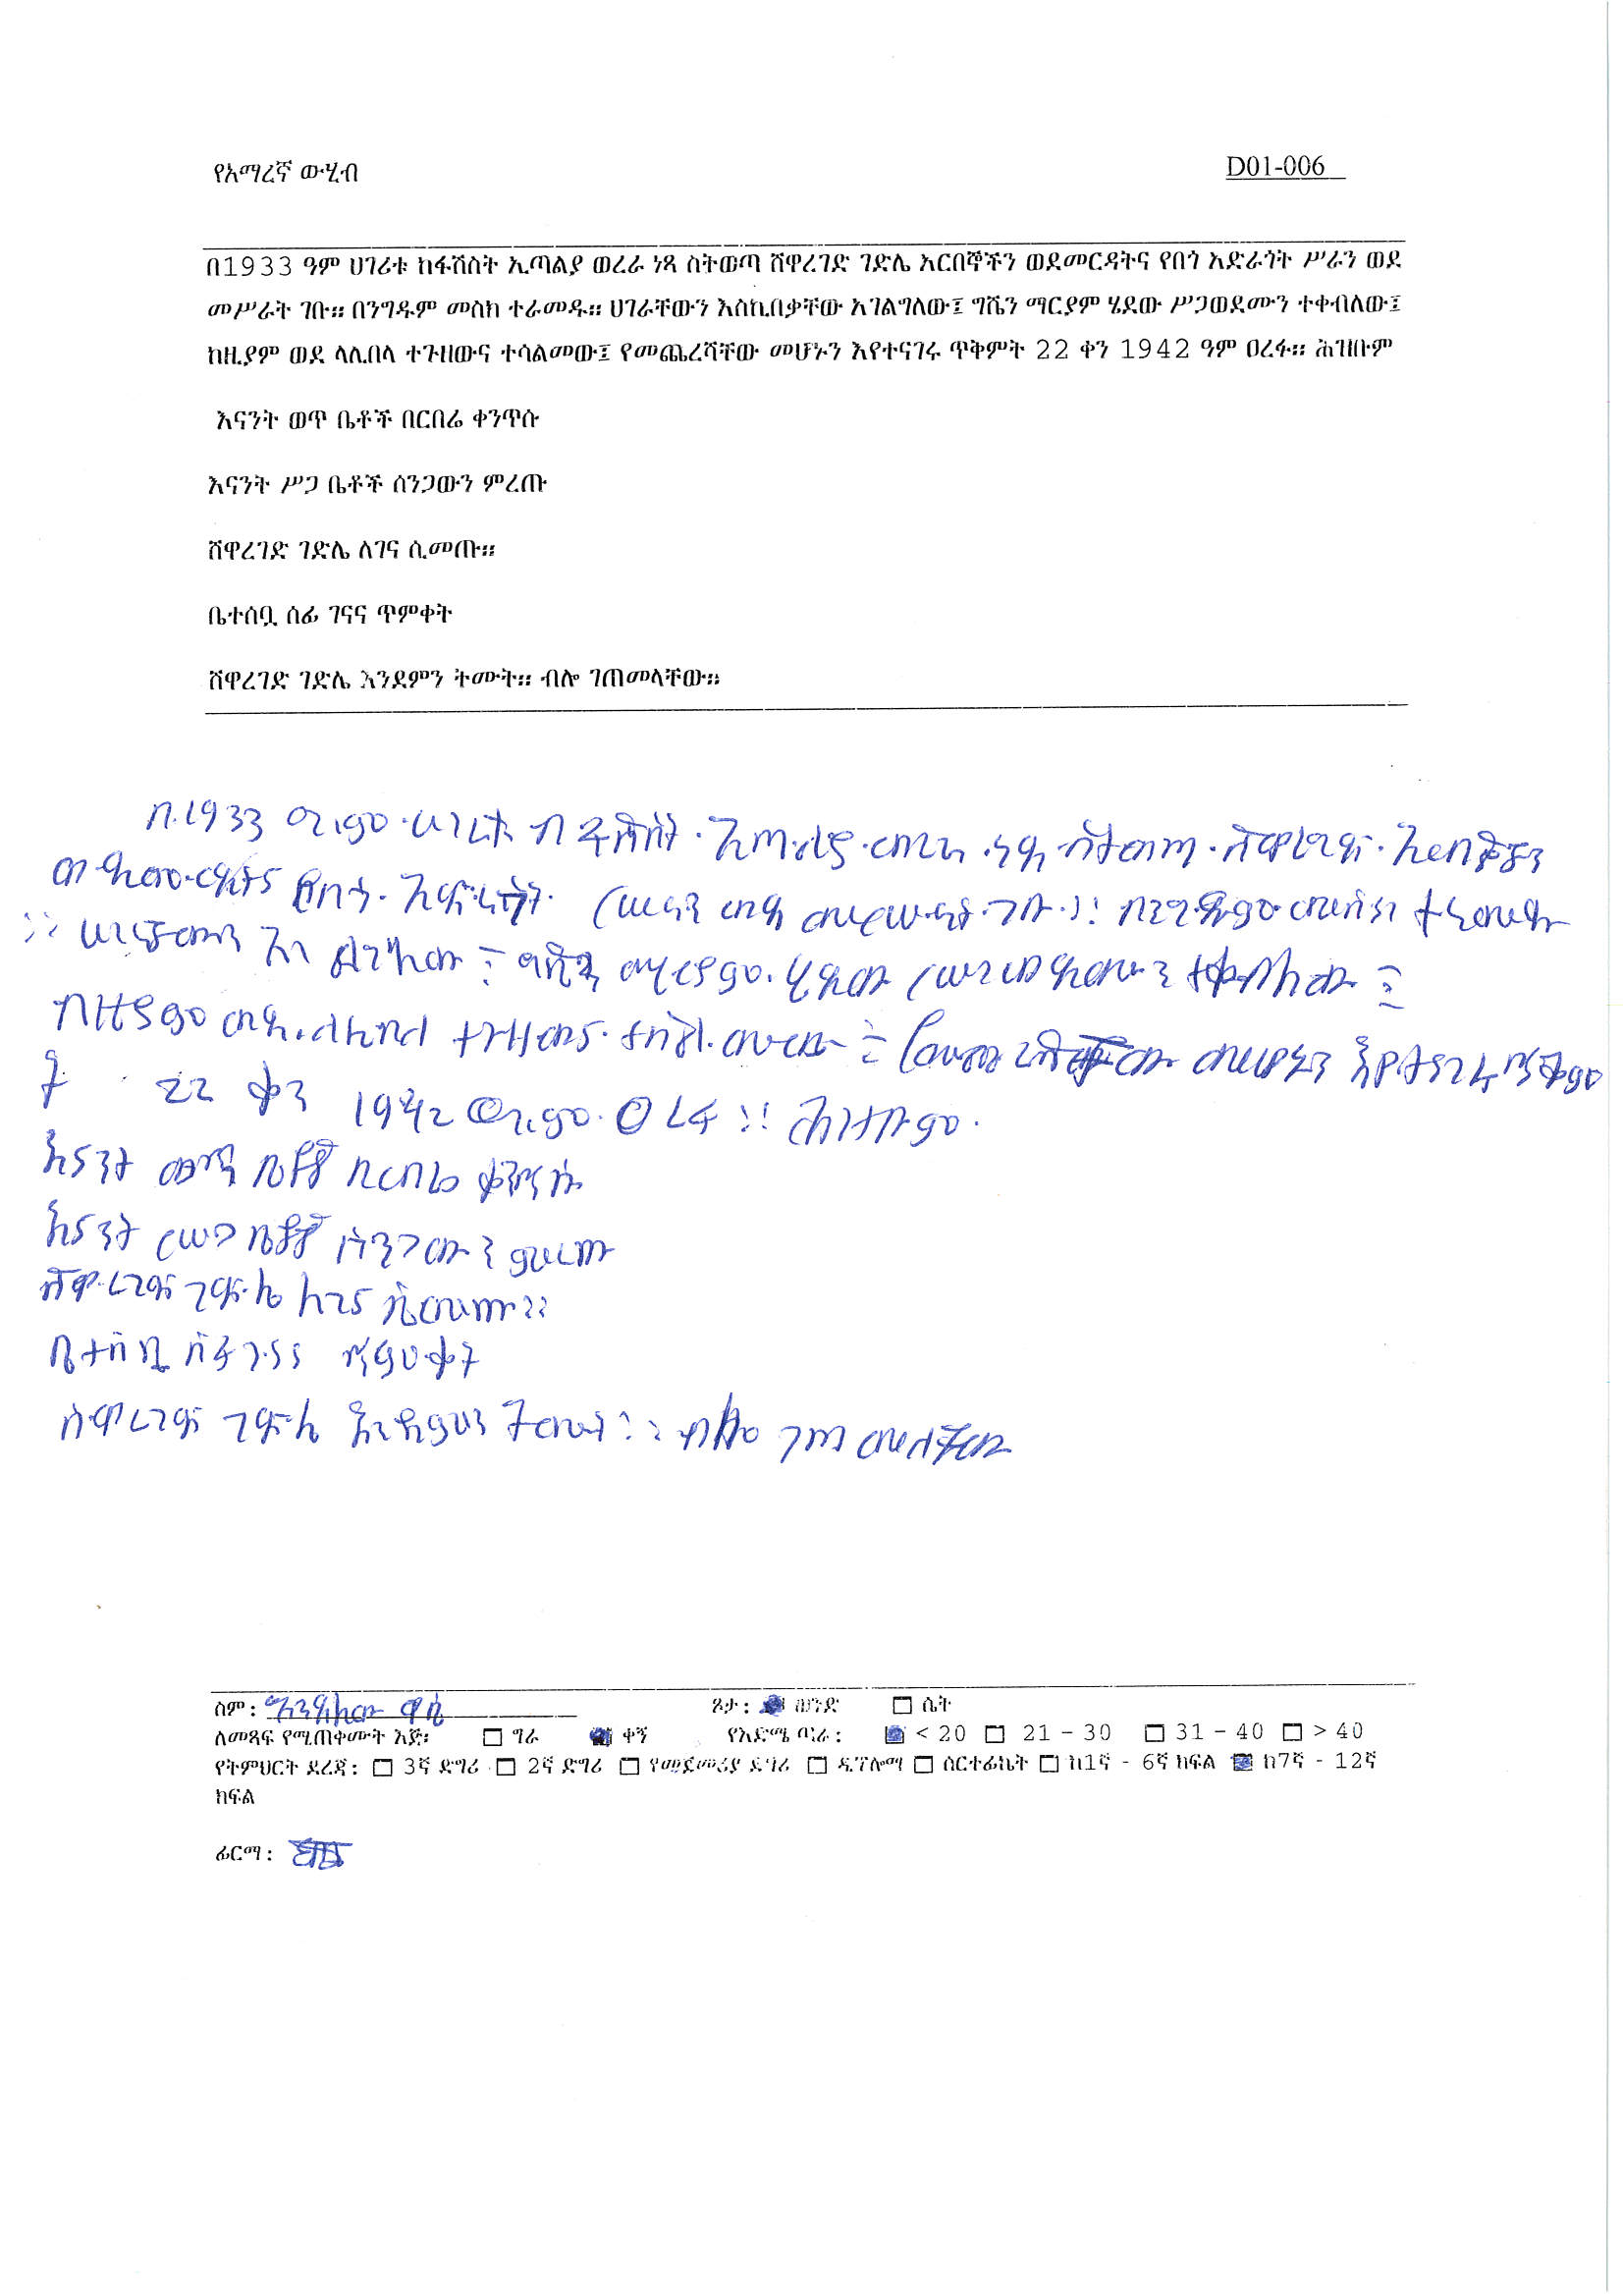 የአማረኛ ውሂብ D01-006
በ1933 ዓም ሀገሪቱ ከፋሽስት ኢጣልያ ወረራ ነጻ ስትወጣ ሸዋረገድ ገድሌ አርበኞችን ወደመርዳትና የበጎ አድራጎት ሥራን ወደ
መሥራት ገቡ። በንግዱም መስክ ተራመዱ። ሀገራቸውን እስኪበቃቸው አገልግለው፤ ግሼን ማርያም ሄደው ሥጋወደሙን ተቀብለው፤
ከዚያም ወደ ላሊበላ ተጉዘውና ተሳልመው፤ የመጨረሻቸው መሆኑን እየተናገሩ ጥቅምት 22 ቀን 1942 ዓም ዐረፉ። ሕዝቡም
እናንት ወጥ ቤቶች በርበሬ ቀንጥሱ
እናንት ሥጋ ቤቶች ሰንጋውን ምረጡ
ሸዋረገድ ገድሌ ለገና ሲመጡ።
ቤተሰቧ ሰፊ ገናና ጥምቀት
ሸዋረገድ ገድሌ እንደምን ትሙት። ብሎ ገጠመላቸው።
በ1933 ዓ.ም ሀገሪቱ ከፋሽስት ኢጣሊያ ወረራ ነጻ ስትወጣ ሸዋረገድ
የበጎ አድራጎት ሥራን ወደ መሥራት ገቡ። በንግዱም መስክ ተራመዱ
። ግሼን ማርያም ሄደው ሥጋወደሙን ተቀብለው ፤
ከዚያም ወደ ላሊበላ ተጉዘውና ተሳልመው ፤ መሆኑን እየተናገሩ
ት 22 ቀን 1942 ዓ.ም ዐረፉ ። ሕዝቡም
እናንት ወጥ ቤቶች በርበሬ ቀንጥሱ
እናንት ሥጋ ቤቶች ሰንጋውን ምረጡ
ሸዋረገድ ገድሌ ለገና ሲመጡ ።
ቤተሰቧ ሰፊ ገናና ጥምቀት
ሸዋረገድ ገድሌ እንዲምን ትሙት ። ብሎ ገጠመላቸው
ስም:
ጾታ: ወንድ ሴት
ለመጻፍ የሚጠቀሙት እጅ: ግራ ቀኝ የእድሜ ጣራ: < 20 21 - 30 31 - 40 > 40
የትምህርት ደረጃ: 3ኛ ድግሪ 2ኛ ድግሪ የመጀመሪያ ዲግሪ ዲፕሎማ ሰርተፊኬት ከ1ኛ - 6ኛ ክፍል ከ7ኛ - 12ኛ
ክፍል
ፊርማ: